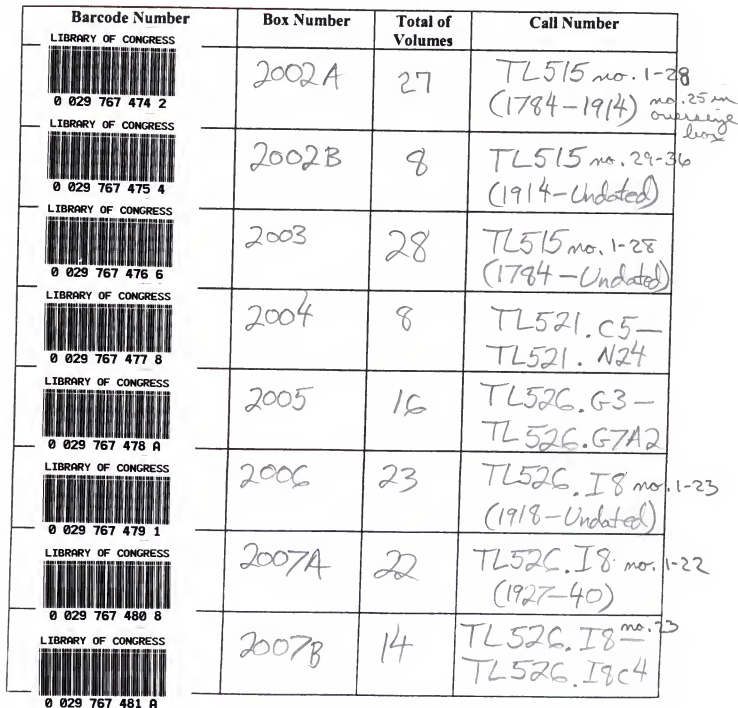 Barcode Number Box Number Total of Volumes Call Number
LIBRARY OF CONGRESS
0 029 767 474 2
2002A
27
TL515 no. 1-28
(1784-1914) no. 25 in oversize box
LIBRARY OF CONGRESS
0 029 767 475 4
2002B
8
TL515 no. 29-36
(1914-Undated)
LIBRARY OF CONGRESS
0 029 767 476 6
2003
28
TL515 no. 1-28
(1784-Undated)
LIBRARY OF CONGRESS
0 029 767 477 8
2004
8
TL521.C5-
TL521.N24
LIBRARY OF CONGRESS
0 029 767 478 A
2005
16
TL526.G3-
TL526.G7A2
LIBRARY OF CONGRESS
0 029 767 479 1
2006
23
TL526.I8 no. 1-23
(1918-Undated)
LIBRARY OF CONGRESS
0 029 767 480 8
2007A
22
TL526.I8 no. 1-22
(1927-40)
LIBRARY OF CONGRESS
0 029 767 481 A
2007B
14
TL526.I8 no. 23-
TL526.I8c4